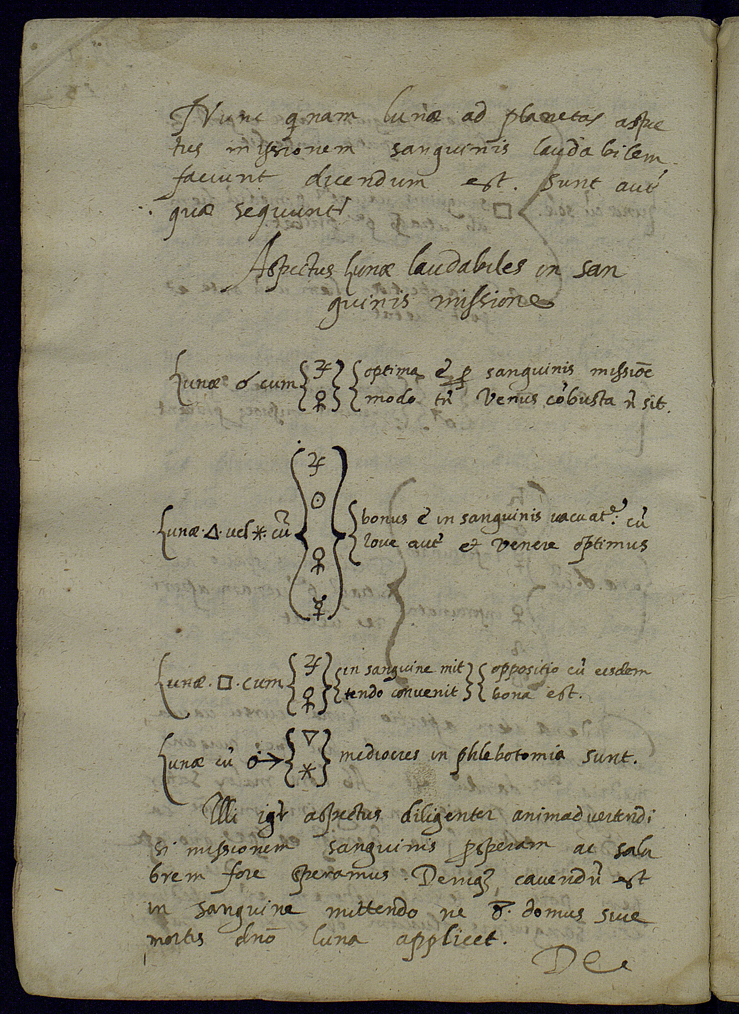 Nunc qnam lunæ ad planetas aspe
tus missionem sanguinis laudabilem
faciunt dicendum est. Sunt aut
quæ sequunt
Aspectus Lunæ laudabiles in san
guinis missione
Lunæ ☌ cum { ♃ ♀ } { optima ē p sanguinis missiōe
modo tñ Venus cōbusta ñ sit.
Lunæ · △ · vel ⚹ · cū { ♃ ☉ ♀ ☿ } { bonus ē in sanguinis vacuate: cū
Iove aut et Venere optimus
Lunæ · □ · cum { ♃ ♀ } { in sanguine mit } { oppositio cū eisdem
tendo convenit } { bona est.
Lunæ cū ♂ { ▽ ⚹ } mediocres in phlebotomia sunt.
Illi igr aspectus diligenter animadvertendi
si missionem sanguinis psperam ac salu
brem fore speramus. Deniq, cavendū est
in sanguine mittendo ne 8. domus sive
mortis dnō luna applicet.
De